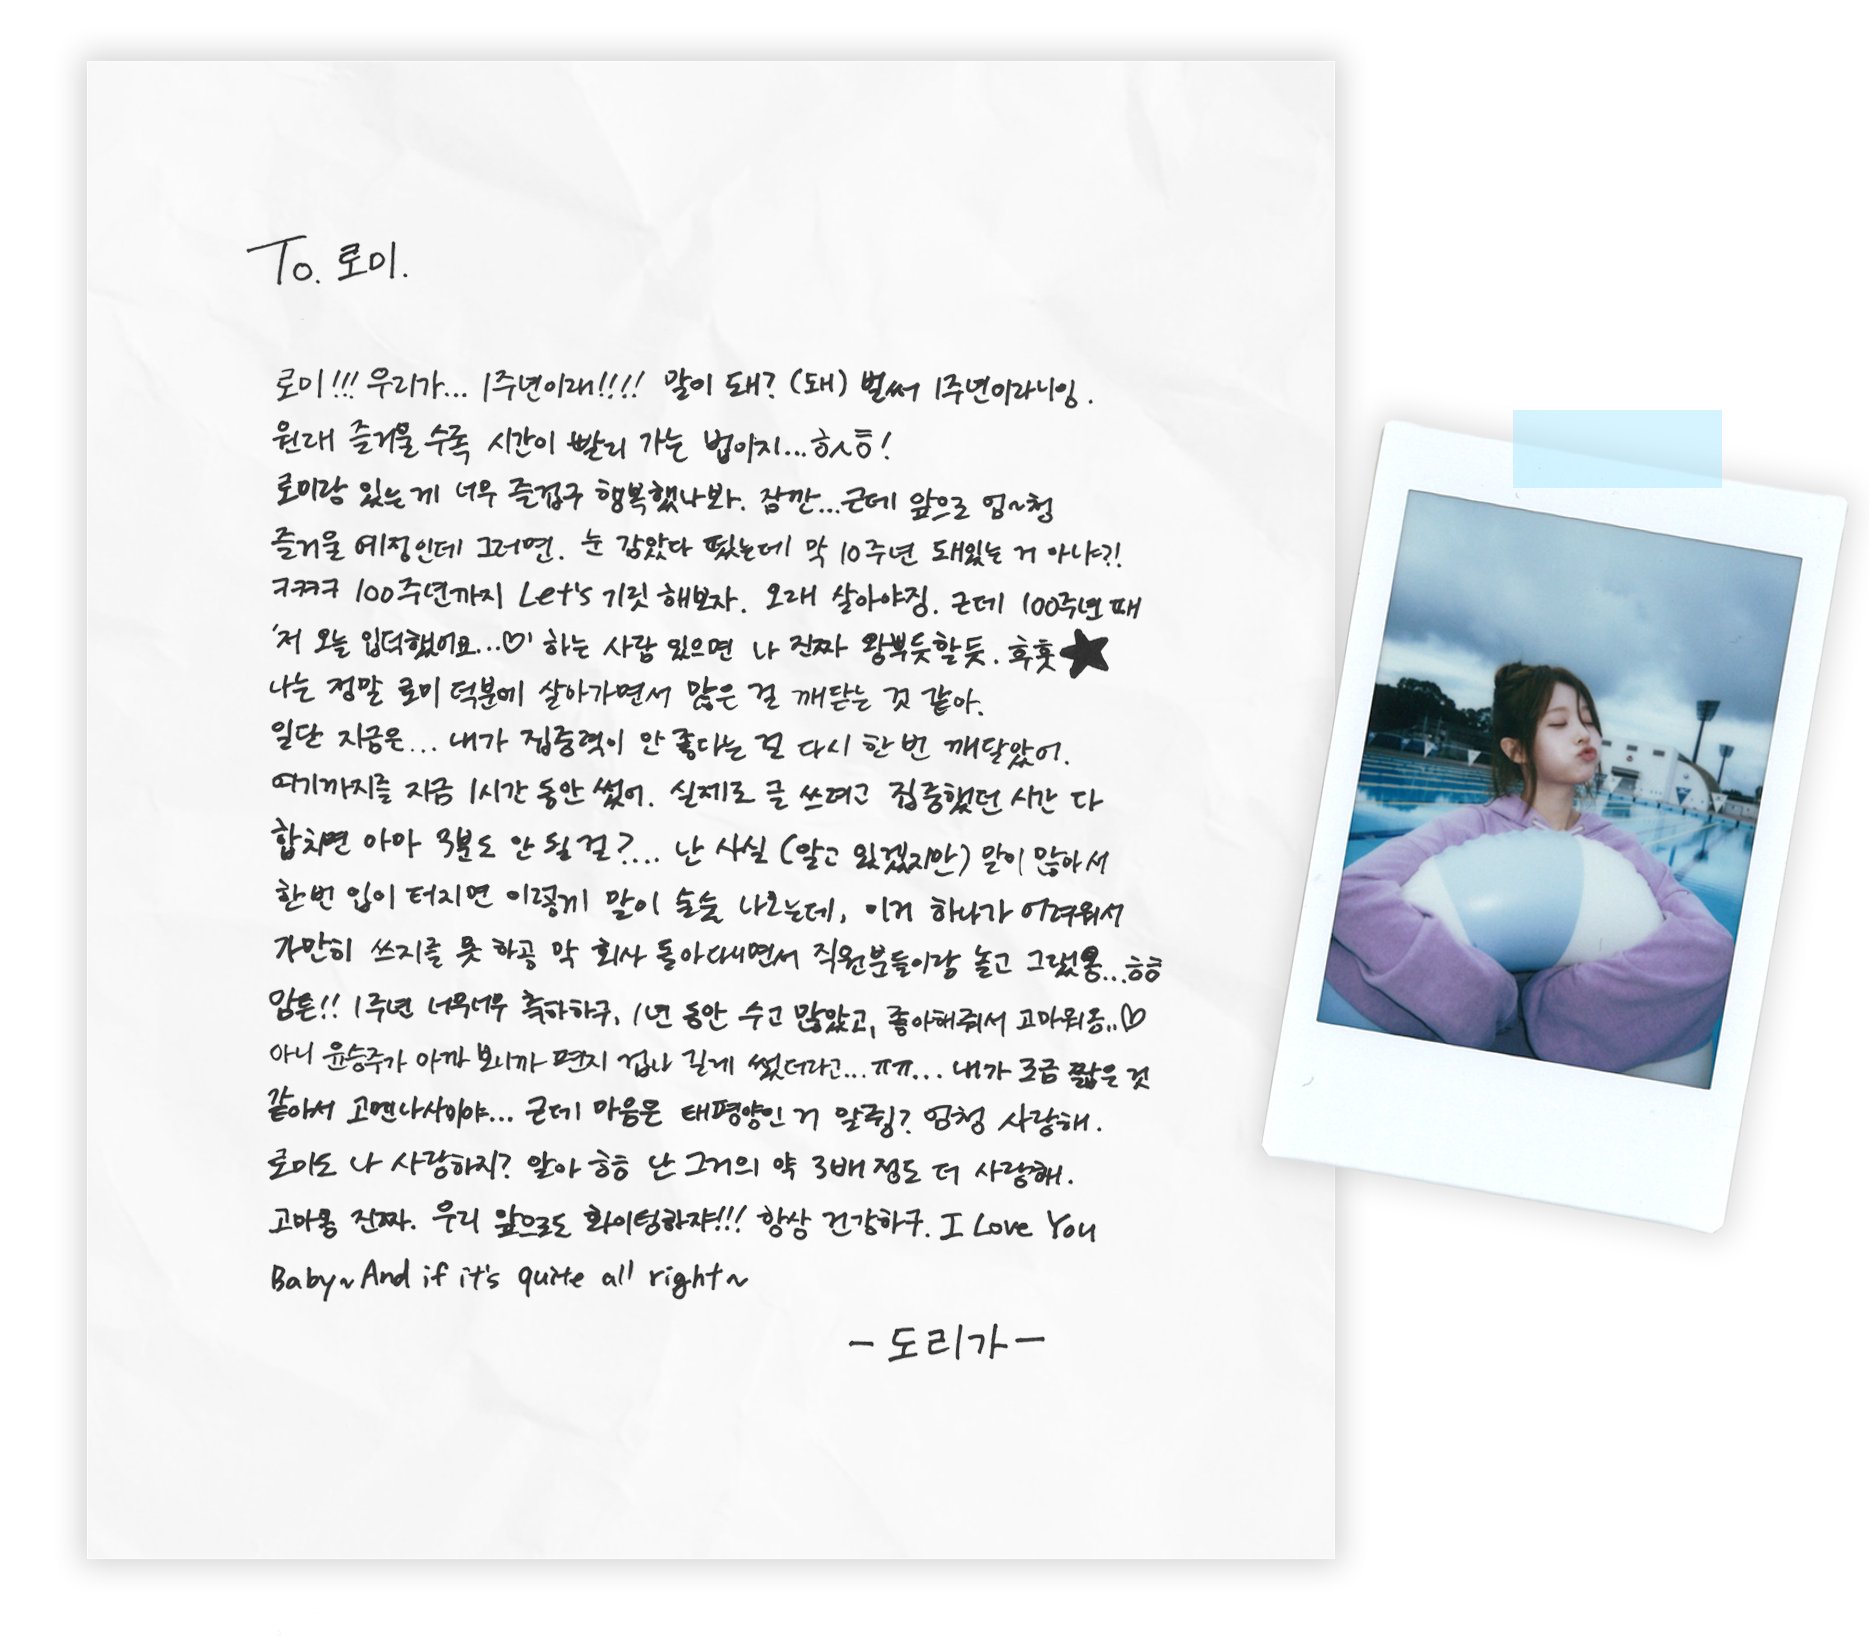 To. 로미.
로미!!! 우리가... 1주년이래!!!! 말이 돼? (돼) 벌써 1주년이라니잉.
원래 즐거울 수록 시간이 빨리 가는 법이지...ㅎㅅㅎ!
로미랑 있는게 너무 즐겁구 행복했나봐. 잠깐...근데 앞으로 엄~청
즐거울 예정인데 그러면. 눈 감았다 떴는데 막 10주년 돼있는 거 아냐?!
ㅋㅋㅋㅋ 100주년까지 Let's 기릿 해보자. 오래 살아야징. 근데 100주년 때
'저 오늘 입덕했어요...♡' 하는 사람 있으면 나 진짜 왕뿌듯할듯. 후훗★
나는 정말 로미 덕분에 살아가면서 많은 걸 깨닫는 것 같아.
일단 지금은... 내가 집중력이 안 좋다는 걸 다시 한 번 깨달았어.
여기까지를 지금 1시간 동안 썼어. 실제로 글 쓰려고 집중했던 시간 다
합치면 아마 3분도 안 될 걸?... 난 사실 (알고 있겠지만) 말이 많아서
한번 입이 터지면 이렇게 말이 술술 나오는데, 이거 하나가 어려워서
가만히 쓰지를 못 하공 막 회사 돌아다니면서 직원분들이랑 놀고 그랬옹...ㅎㅎ
암튼!! 1주년 너무너무 축하하구, 1년 동안 수고 많았고, 좋아해줘서 고마워용..♡
아니 윤승주가 아까 보니까 편지 겁나 길게 썼더라고...ㅠㅠ... 내가 조금 짧은 것
같아서 고멘나사이야... 근데 마음은 태평양인 거 알쥥? 엄청 사랑해.
로미도 나 사랑하지? 알아 ㅎㅎ 난 그거의 약 3배 정도 더 사랑해.
고마옹 진짜. 우리 앞으로도 화이팅하쟈!!! 항상 건강하구. I Love You
Baby~And if it's quite all right~
-도리가-